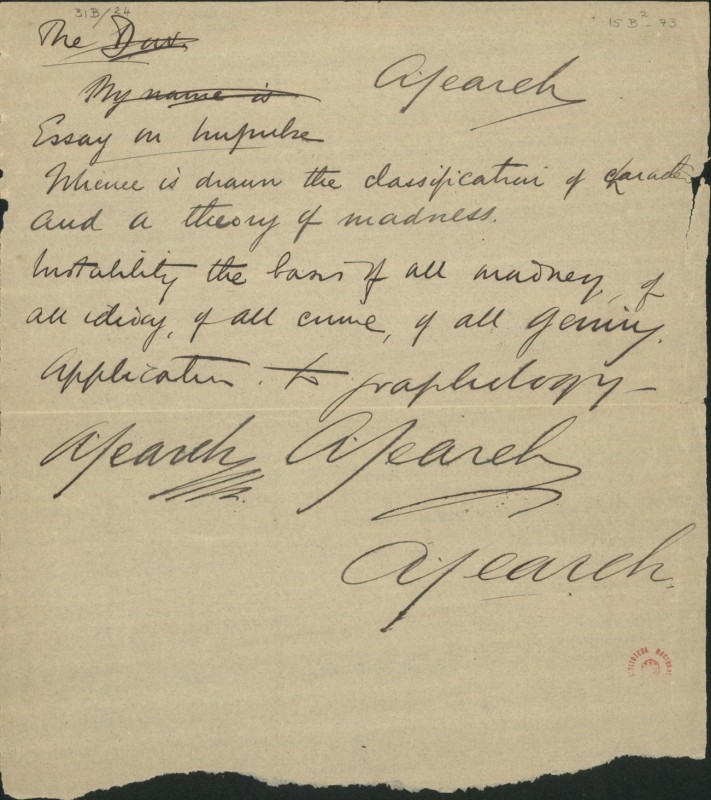 31 B/24
15 B²-73
The Dav.
ASearch
My name is
Essay on Impulse
Whence is drawn the classification of character
and a theory of madness.
Instability the basis of all madness, of
all idiocy, of all crime, of all genius.
Application to graphology—
ASearch ASearch
ASearch.
BIBLIOTECA NACIONAL